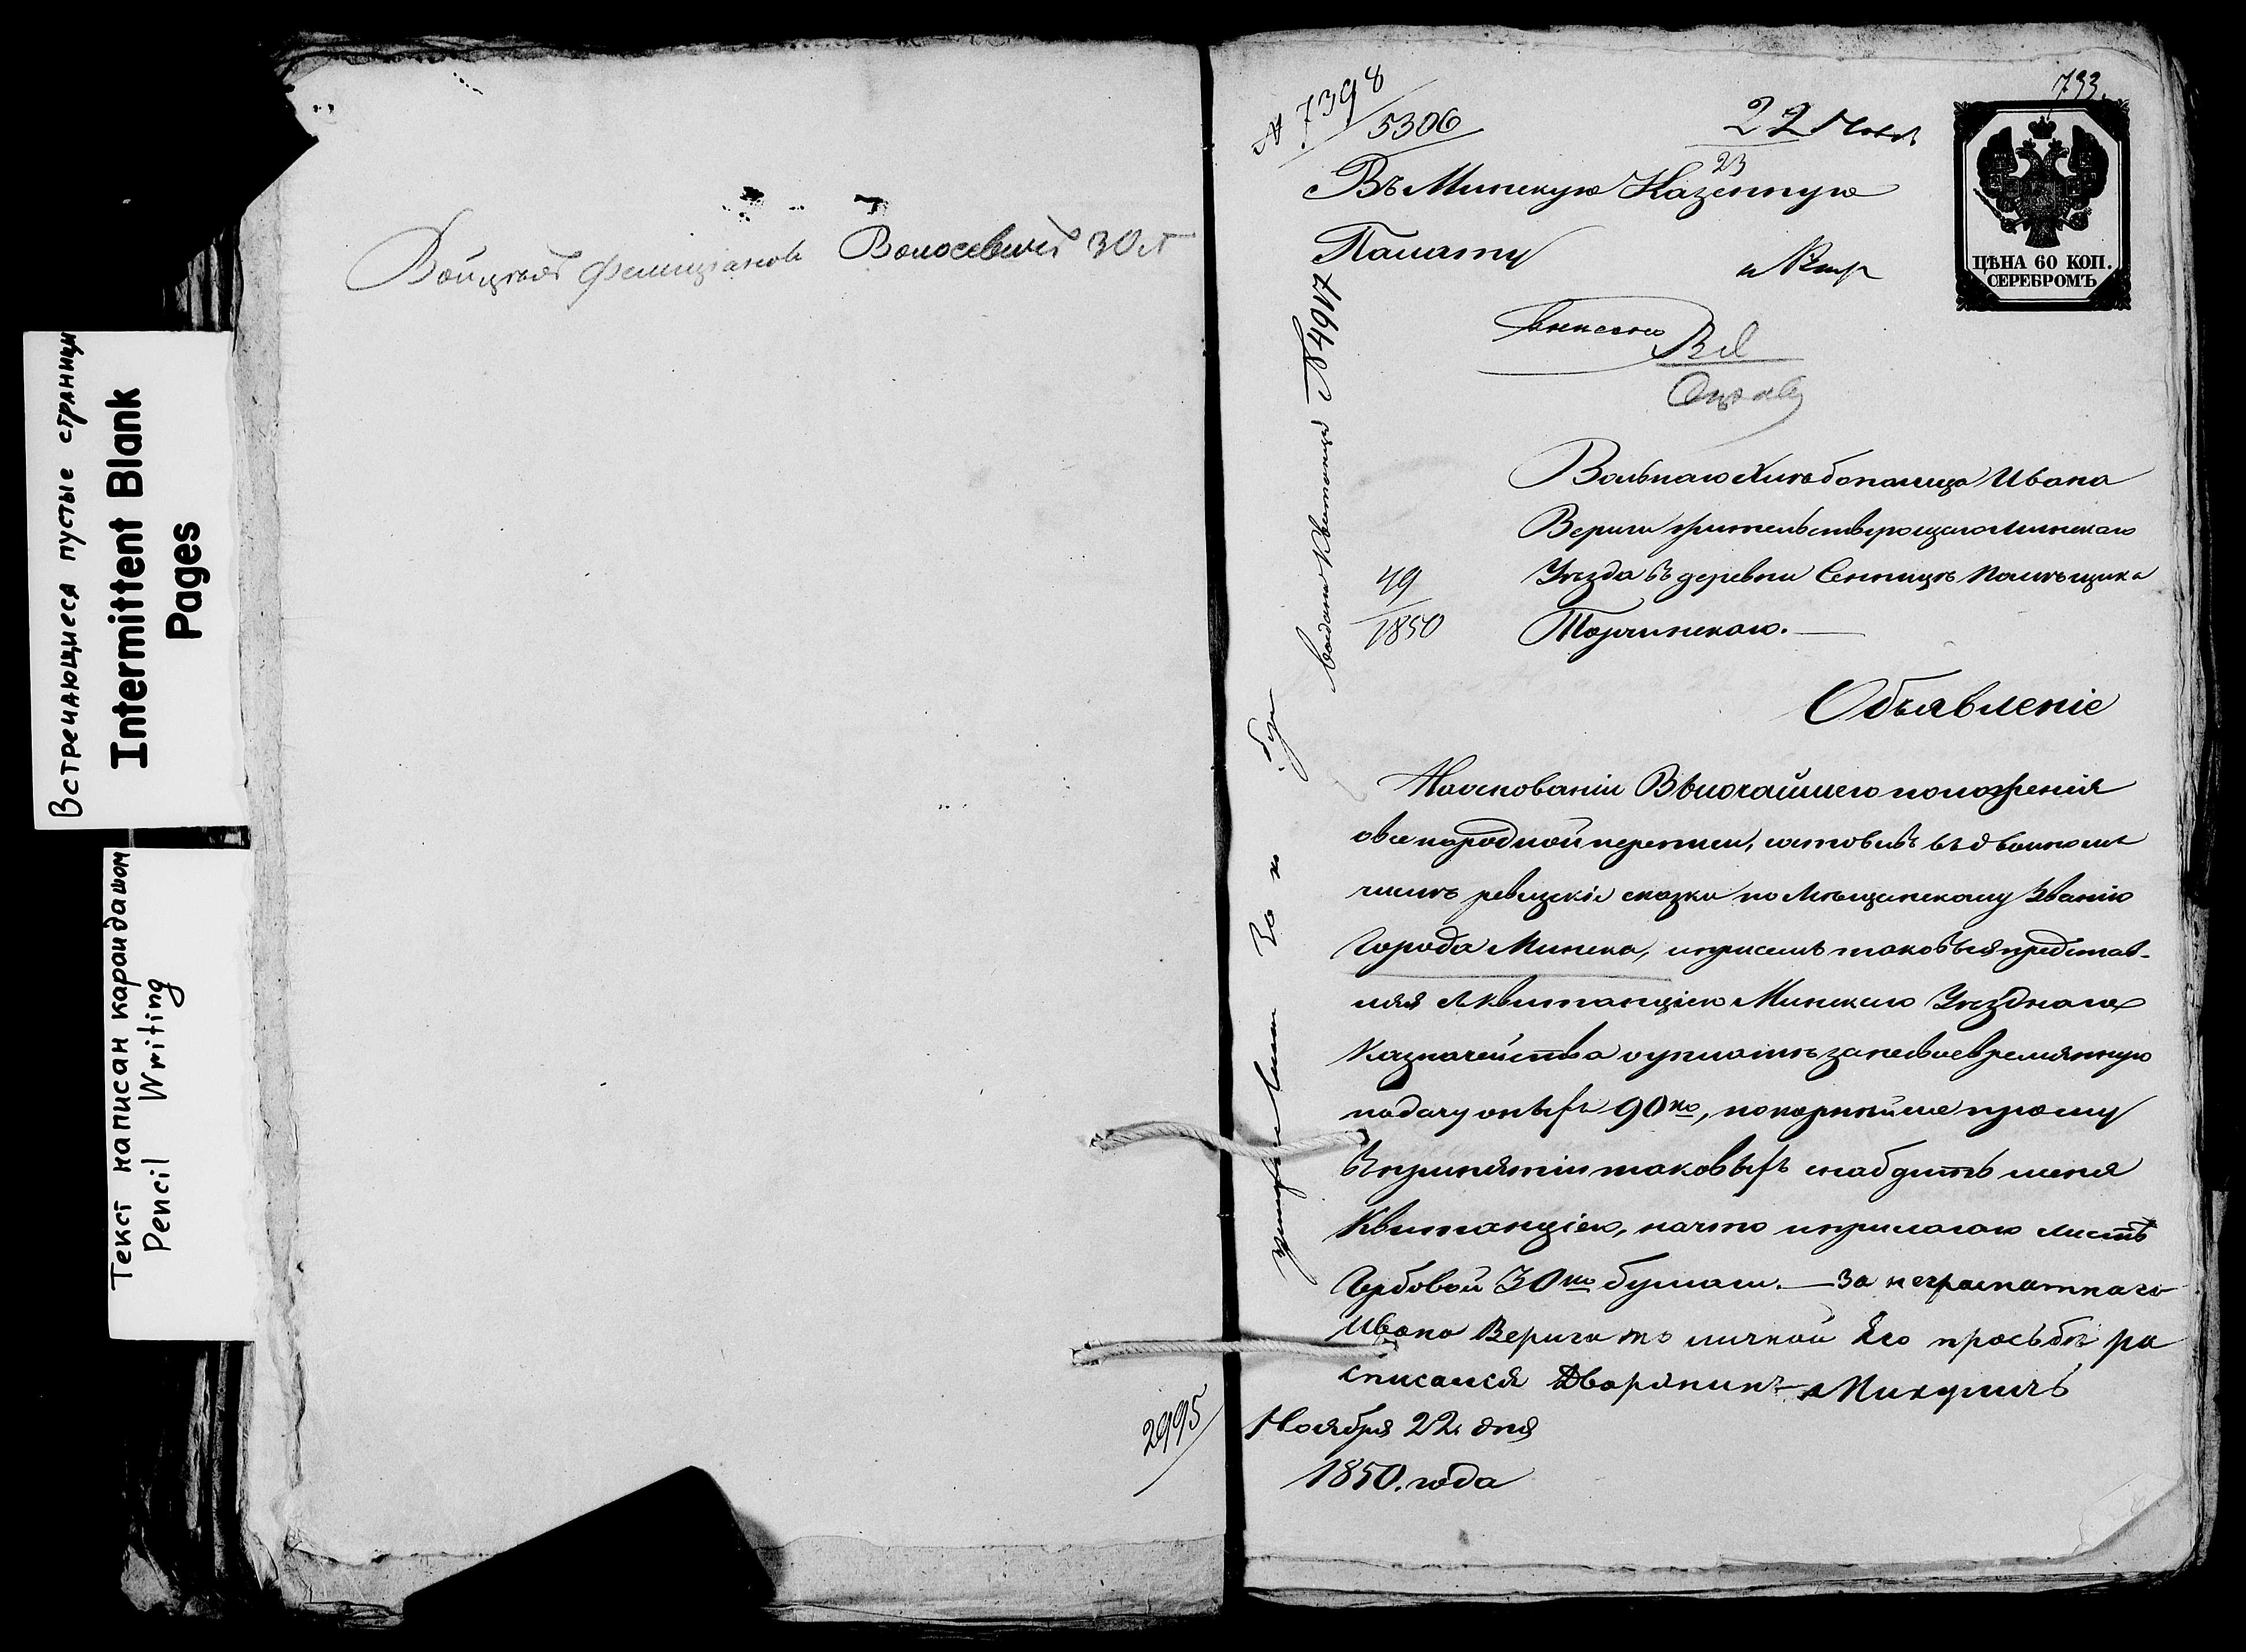 Встречающиеся пустые страницы
Intermittent Blank
Pages
Текст написан карандашом
Pencil Writing
Войцехъ Фелиціановъ Волосевичъ 30 л
2995
793.
№ 7398
5306
22 Нояб
23
Въ Минскую Казенную
Палату
ЦѢНА 60 КОП.
СЕРЕБРОМЪ
выдана Квитанція № 4917
Вольнаго Хлѣбопашца Ивана
Вериги жительствующаго Минскаго
Уѣзда въ деревни Сенницѣ Помѣщика
49
1850
Объявленіе
На основаніи Высочайшего положенія
о все народной переписи, составивъ въ двойномъ
числѣ ревизскіе сказки по Мѣщанскому Званію
Города Минска, и при семъ таковыя представ-
ляя съ Квитанціею Минскаго Уѣзднаго
Казначейства о уплатѣ за несвоевремянную
подачу оныхъ 90 ко, покорнѣйше прошу
в принятіи таковыхъ снабдить меня
Квитанціею, на что и прилагаю листъ
Гербовой 30 ко бумаги. — За неграматнаго
Ивана Верига по личной Его просьбѣ ра
списался Дворянинъ
Ноября 22 дня
1850. года